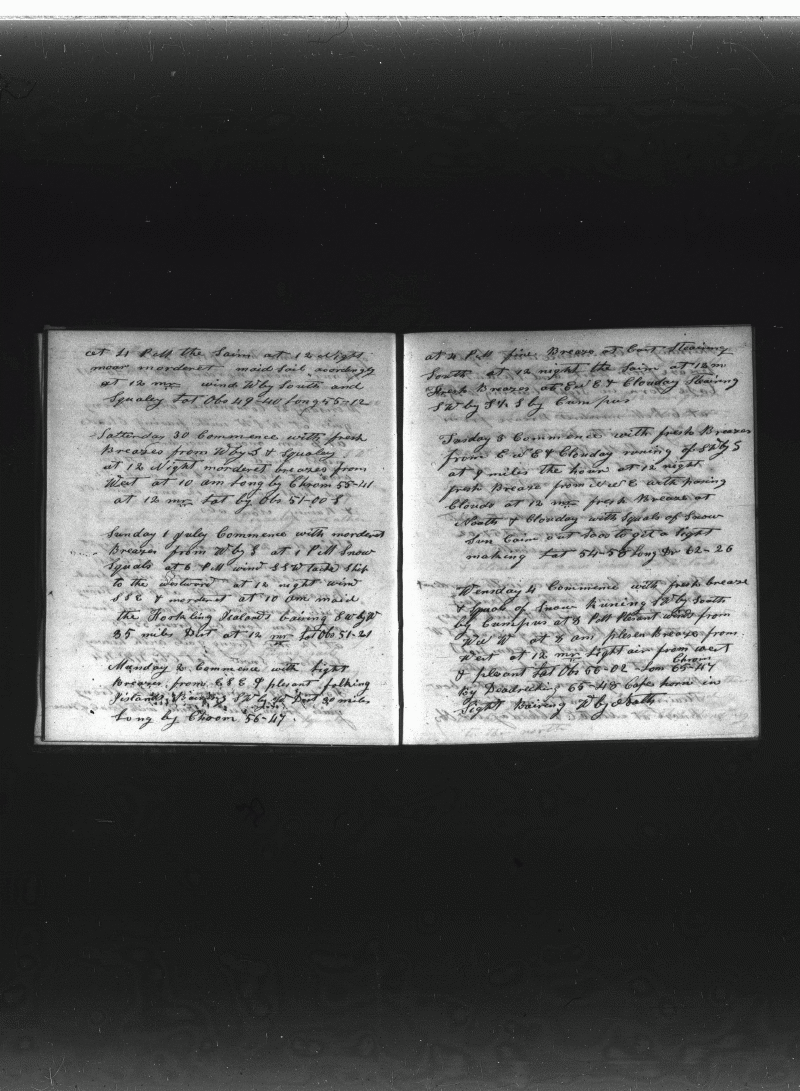 at 4 P M the Saim at 12 Night
moor morderet maid Sail acordingly
at 12 m wind W by South and
Squaley Lat Obs 49-40 Long 55-12
Satterday 30 Commence with fresh
Breazes from W by S & Squaley
at 12 Night morderet breazes from
West at 10 am Long by Chrom 55-41
at 12 m Lat by Obs 51-00 S
Sunday 1 July Commence with morderet
Breazes from W by S at 1 P M Snow
Squals at 6 P M wind SSW tackt Ship
to the westward at 12 night wind
SSE & morderet at 10 am maid
the Islands bairing SW by W
35 miles Dist at 12 m Lat Obs 51-21
Munday 2 Commence with light
Breazes from ESE & plesent falking
Islands Bairing SW by W Dist 30 miles
Long by Chrom 56-47
at 4 P M fine Breaze at East Stearing
South at 12 night the Saim at 12 m
Fresh Breazes at & Clouday Stearing
SW by S & S by Campus
Tusday 3 Commence with fresh Breazes
from & Clouday runing SW by S
at 9 miles the hour at 12 night
fresh Breaze from with
Clouds at 12 m fresh Breaze at
North & Clouday with Squals of Snow
Sun Caim out to get a Sight
making Lat 54-58 Long Dr 62-26
Wensday 4 Commence with fresh breaze
& Squals of Snow Runing SW by South
by Campus at 8 P M Plesent winds from
at 8 am plesen Breaze from
West at 12 m Light air from west
& plesent Lat Obs 56-02 Lon Chrom 65-47
By Deadrecking 65-48 Cape horn in
Sight Bairing W by North